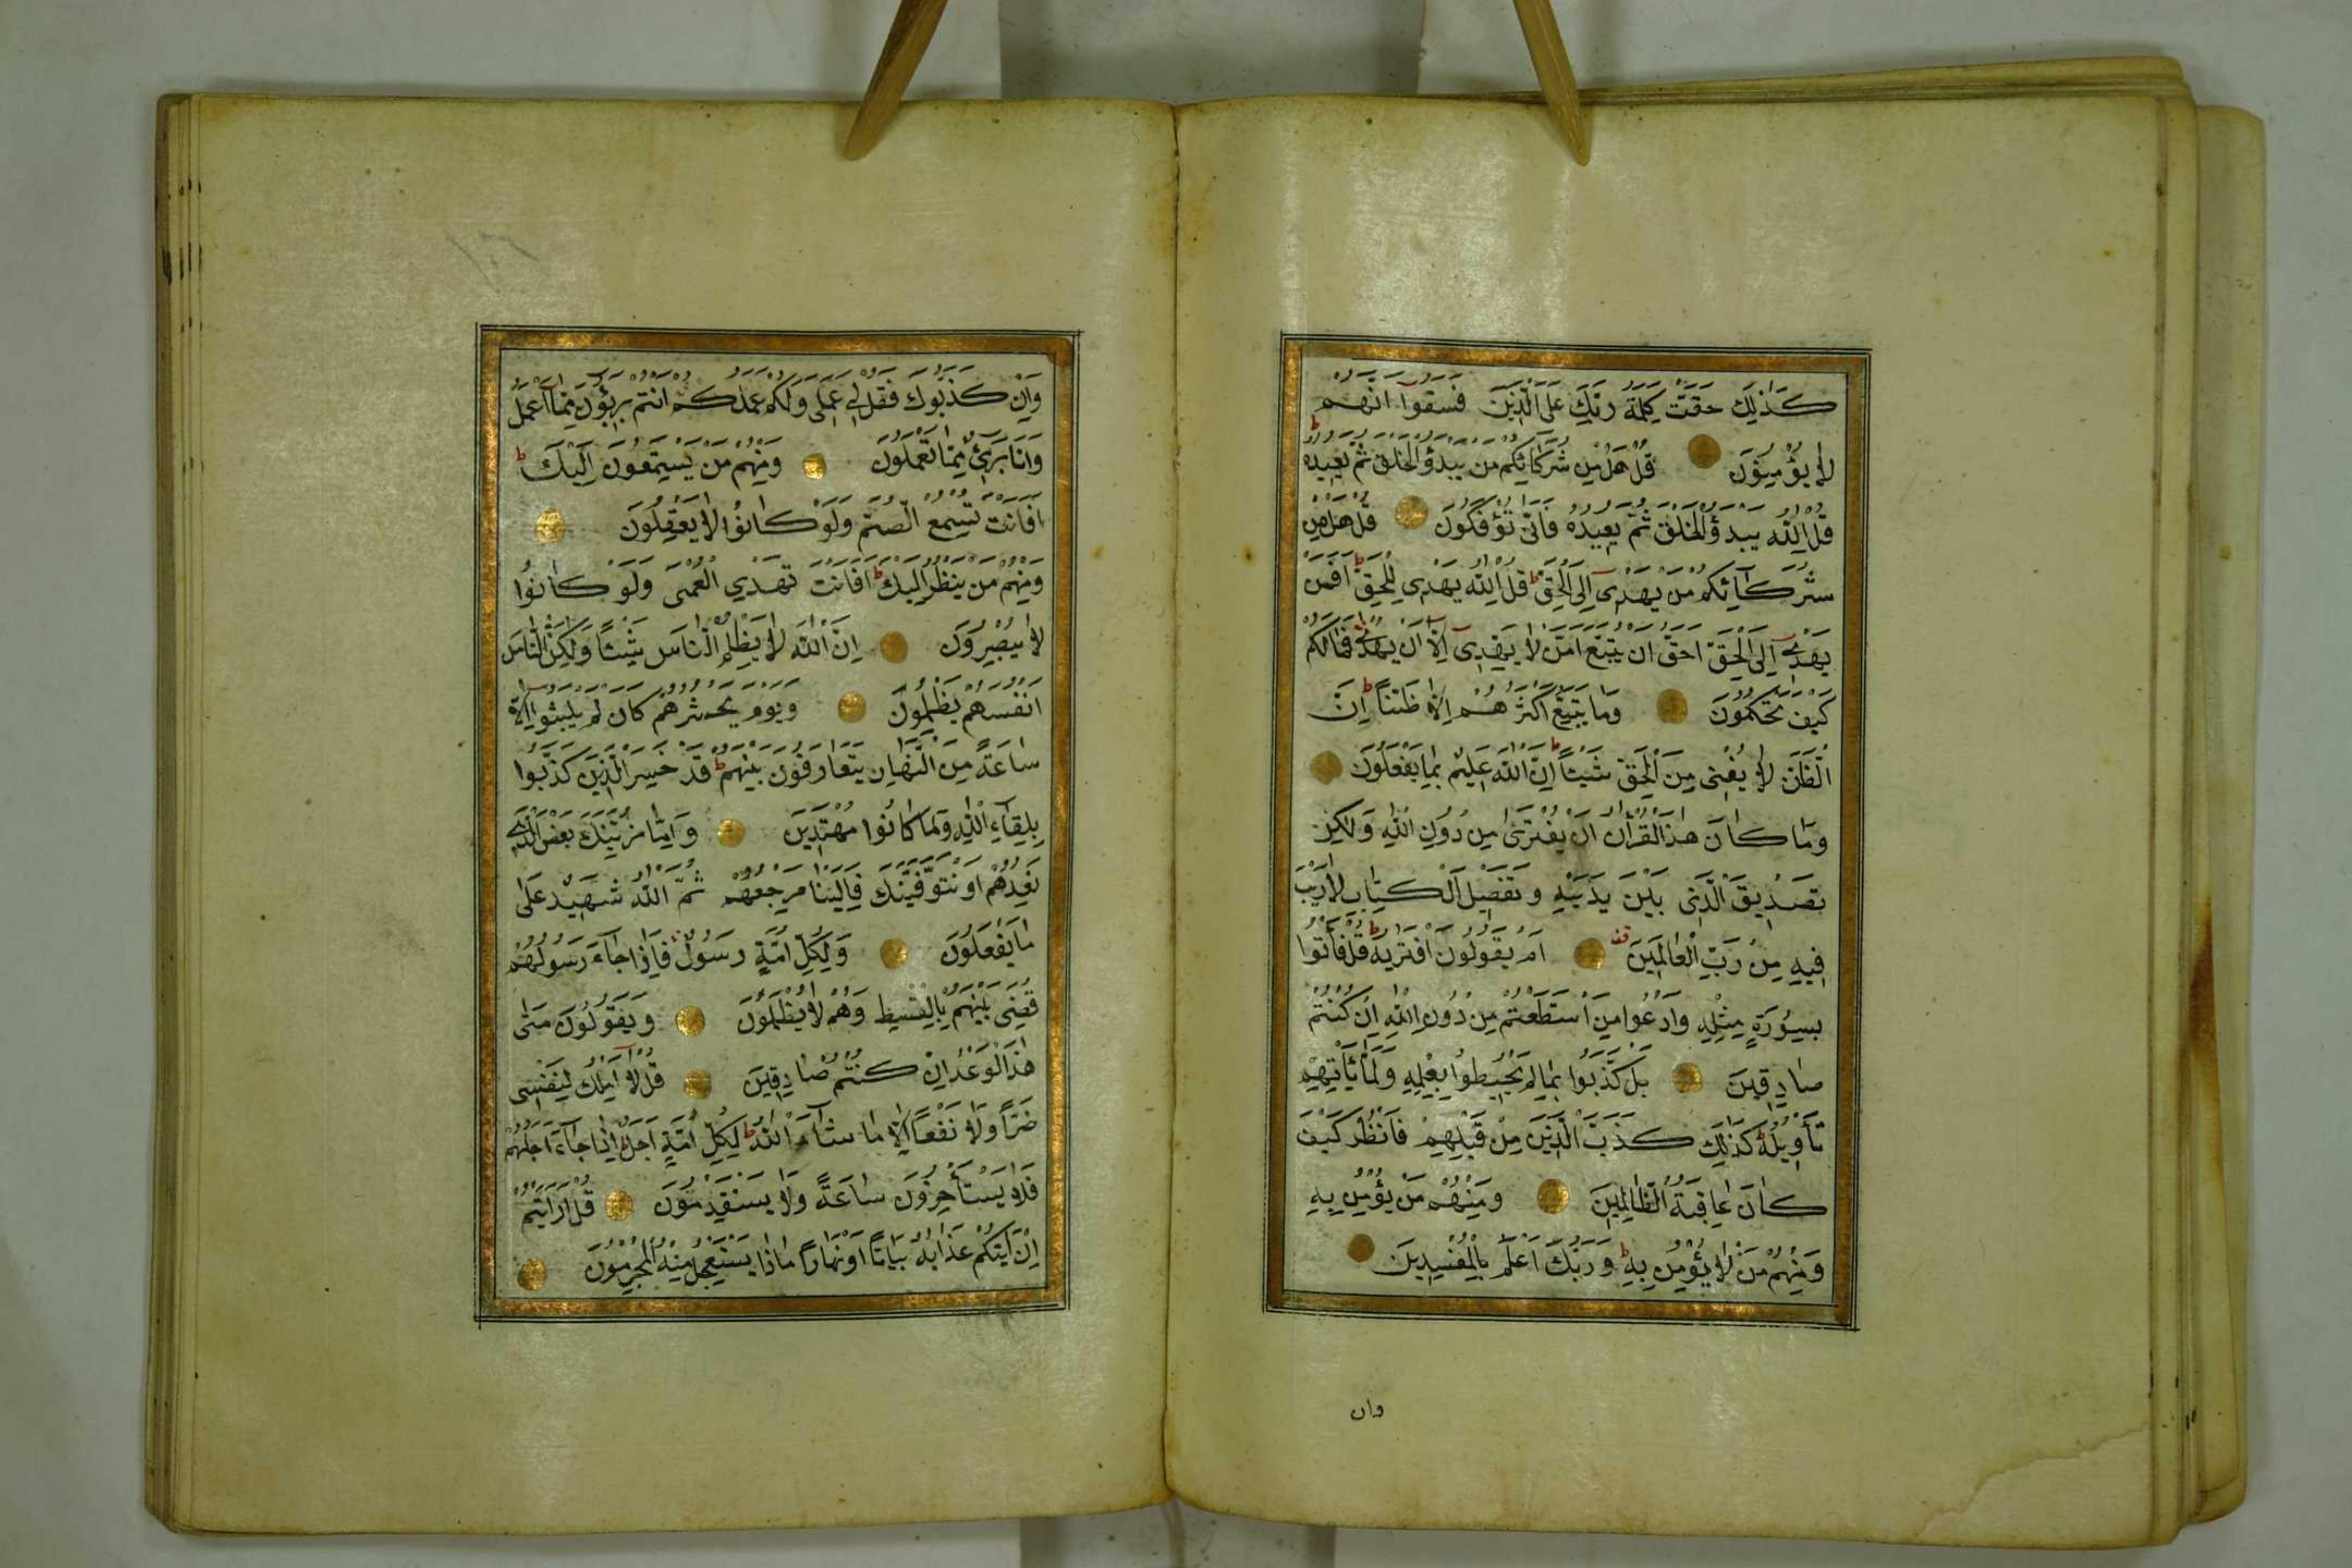 كَذٰلِكَ حَقَّتْ كَلِمَةُ رَبِّكَ عَلَى الَّذِينَ فَسَقُوا اَنَّهُمْ
لَا يُؤْمِنُونَ قُلْ هَلْ مِنْ شُرَكَائِكُمْ مَنْ يَبْدَؤُ الْخَلْقَ ثُمَّ يُعِيدُهُ ط
قُلِ اللّٰهُ يَبْدَؤُ الْخَلْقَ ثُمَّ يُعِيدُهُ فَاَنّٰى تُؤْفَكُونَ قُلْ هَلْ مِنْ
شُرَكَآئِكُمْ مَنْ يَهْدِى اِلَى الْحَقِّ ط قُلِ اللّٰهُ يَهْدِى لِلْحَقِّ ط اَفَمَنْ
يَهْدِى اِلَى الْحَقِّ اَحَقُّ اَنْ يُتَّبَعَ اَمَّنْ لَا يَهِدِّى اِلَّا اَنْ يُهْدٰى فَمَا لَكُمْ
كَيْفَ تَحْكُمُونَ وَمَا يَتَّبِعُ اَكْثَرُهُمْ اِلَّا ظَنًّا ط اِنَّ
الظَّنَّ لَا يُغْنِى مِنَ الْحَقِّ شَيْئًا ط اِنَّ اللّٰهَ عَلِيمٌ بِمَا يَفْعَلُونَ
وَمَا كَانَ هٰذَا الْقُرْاٰنُ اَنْ يُفْتَرٰى مِنْ دُونِ اللّٰهِ وَلٰكِنْ
تَصْدِيقَ الَّذِى بَيْنَ يَدَيْهِ وَتَفْصِيلَ الْكِتَابِ لَا رَيْبَ
فِيهِ مِنْ رَبِّ الْعَالَمِينَ قف اَمْ يَقُولُونَ افْتَرٰيهُ ط قُلْ فَأْتُوا
بِسُورَةٍ مِثْلِهِ وَادْعُوا مَنِ اسْتَطَعْتُمْ مِنْ دُونِ اللّٰهِ اِنْ كُنْتُمْ
صَادِقِينَ بَلْ كَذَّبُوا بِمَا لَمْ يُحِيطُوا بِعِلْمِهِ وَلَمَّا يَأْتِهِمْ
تَأْوِيلُهُ ط كَذٰلِكَ كَذَّبَ الَّذِينَ مِنْ قَبْلِهِمْ فَانْظُرْ كَيْفَ
كَانَ عَاقِبَةُ الظَّالِمِينَ وَمِنْهُمْ مَنْ يُؤْمِنُ بِهِ
وَمِنْهُمْ مَنْ لَا يُؤْمِنُ بِهِ ط وَرَبُّكَ اَعْلَمُ بِالْمُفْسِدِينَ
وان
وَاِنْ كَذَّبُوكَ فَقُلْ لِى عَمَلِى وَلَكُمْ عَمَلُكُمْ اَنْتُمْ بَرِيؤُنَ مِمَّا اَعْمَلُ
وَاَنَا بَرِىءٌ مِمَّا تَعْمَلُونَ وَمِنْهُمْ مَنْ يَسْتَمِعُونَ اِلَيْكَ ط
اَفَاَنْتَ تُسْمِعُ الصُّمَّ وَلَوْ كَانُوا لَا يَعْقِلُونَ
وَمِنْهُمْ مَنْ يَنْظُرُ اِلَيْكَ ط اَفَاَنْتَ تَهْدِى الْعُمْىَ وَلَوْ كَانُوا
لَا يُبْصِرُونَ اِنَّ اللّٰهَ لَا يَظْلِمُ النَّاسَ شَيْئًا وَلٰكِنَّ النَّاسَ
اَنْفُسَهُمْ يَظْلِمُونَ وَيَوْمَ يَحْشُرُهُمْ كَاَنْ لَمْ يَلْبَثُوا اِلَّا
سَاعَةً مِنَ النَّهَارِ يَتَعَارَفُونَ بَيْنَهُمْ ط قَدْ خَسِرَ الَّذِينَ كَذَّبُوا
بِلِقَآءِ اللّٰهِ وَمَا كَانُوا مُهْتَدِينَ وَاِمَّا نُرِيَنَّكَ بَعْضَ الَّذِى
نَعِدُهُمْ اَوْ نَتَوَفَّيَنَّكَ فَاِلَيْنَا مَرْجِعُهُمْ ثُمَّ اللّٰهُ شَهِيدٌ عَلٰى
مَا يَفْعَلُونَ وَلِكُلِّ اُمَّةٍ رَسُولٌ فَاِذَا جَآءَ رَسُولُهُمْ
قُضِىَ بَيْنَهُمْ بِالْقِسْطِ وَهُمْ لَا يُظْلَمُونَ وَيَقُولُونَ مَتٰى
هٰذَا الْوَعْدُ اِنْ كُنْتُمْ صَادِقِينَ قُلْ لَا اَمْلِكُ لِنَفْسِى
ضَرًّا وَلَا نَفْعًا اِلَّا مَا شَآءَ اللّٰهُ ط لِكُلِّ اُمَّةٍ اَجَلٌ اِذَا جَآءَ اَجَلُهُمْ
فَلَا يَسْتَأْخِرُونَ سَاعَةً وَلَا يَسْتَقْدِمُونَ قُلْ اَرَاَيْتُمْ
اِنْ اَتٰيكُمْ عَذَابُهُ بَيَاتًا اَوْ نَهَارًا مَاذَا يَسْتَعْجِلُ مِنْهُ الْمُجْرِمُونَ